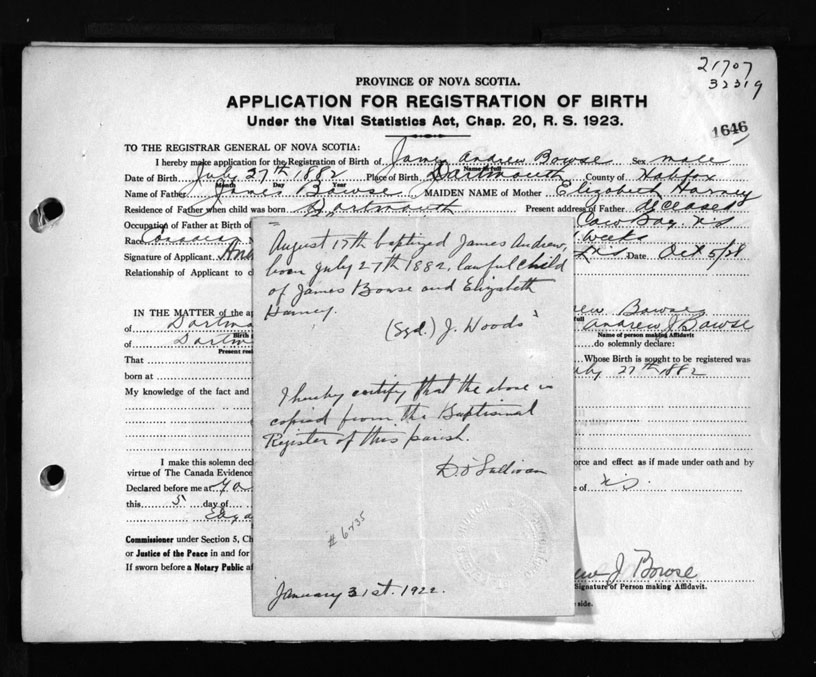 21707
32319
PROVINCE OF NOVA SCOTIA.
APPLICATION FOR REGISTRATION OF BIRTH
Under the Vital Statistics Act, Chap. 20, R. S. 1923.
1646
TO THE REGISTRAR GENERAL OF NOVA SCOTIA:
I hereby make application for the Registration of Birth of James Andrew Bowse Sex male
Name in full
Date of Birth July 27th 1882 Place of Birth Dartmouth County of Halifax
Month Day Year
Name of Father James Bowse MAIDEN NAME of Mother Elizabeth Harney
Residence of Father when child was born Dartmouth Present address of Father deceased
Occupation of Father at Birth of Cow Bay NS
Race Weeks
Signature of Applicant. NS Date Oct 5/28
Relationship of Applicant to
August 17th baptized James Andrew,
born July 27th 1882, lawful child
of James Bowse and Elizabeth
Harney.
(Sgd.) J. Woods
I hereby certify that the above is
copied from the Baptismal
Register of this parish.
D. O'Sullivan
# 6735
January 31st. 1922.
IN THE MATTER of the Bowse
of Andrew J Bowse
Name of person making Affidavit
of do solemnly declare:
Present
That Whose Birth is sought to be registered was
born at July 27th 1882
My knowledge of the fact and
I make this solemn force and effect as if made under oath and by
virtue of The Canada Evidence
Declared before me at of NS.
this 5 day of
Commissioner under Section 5,
or Justice of the Peace in and for
If sworn before a Notary Public J Bowse
Signature of Person making Affidavit.
side.